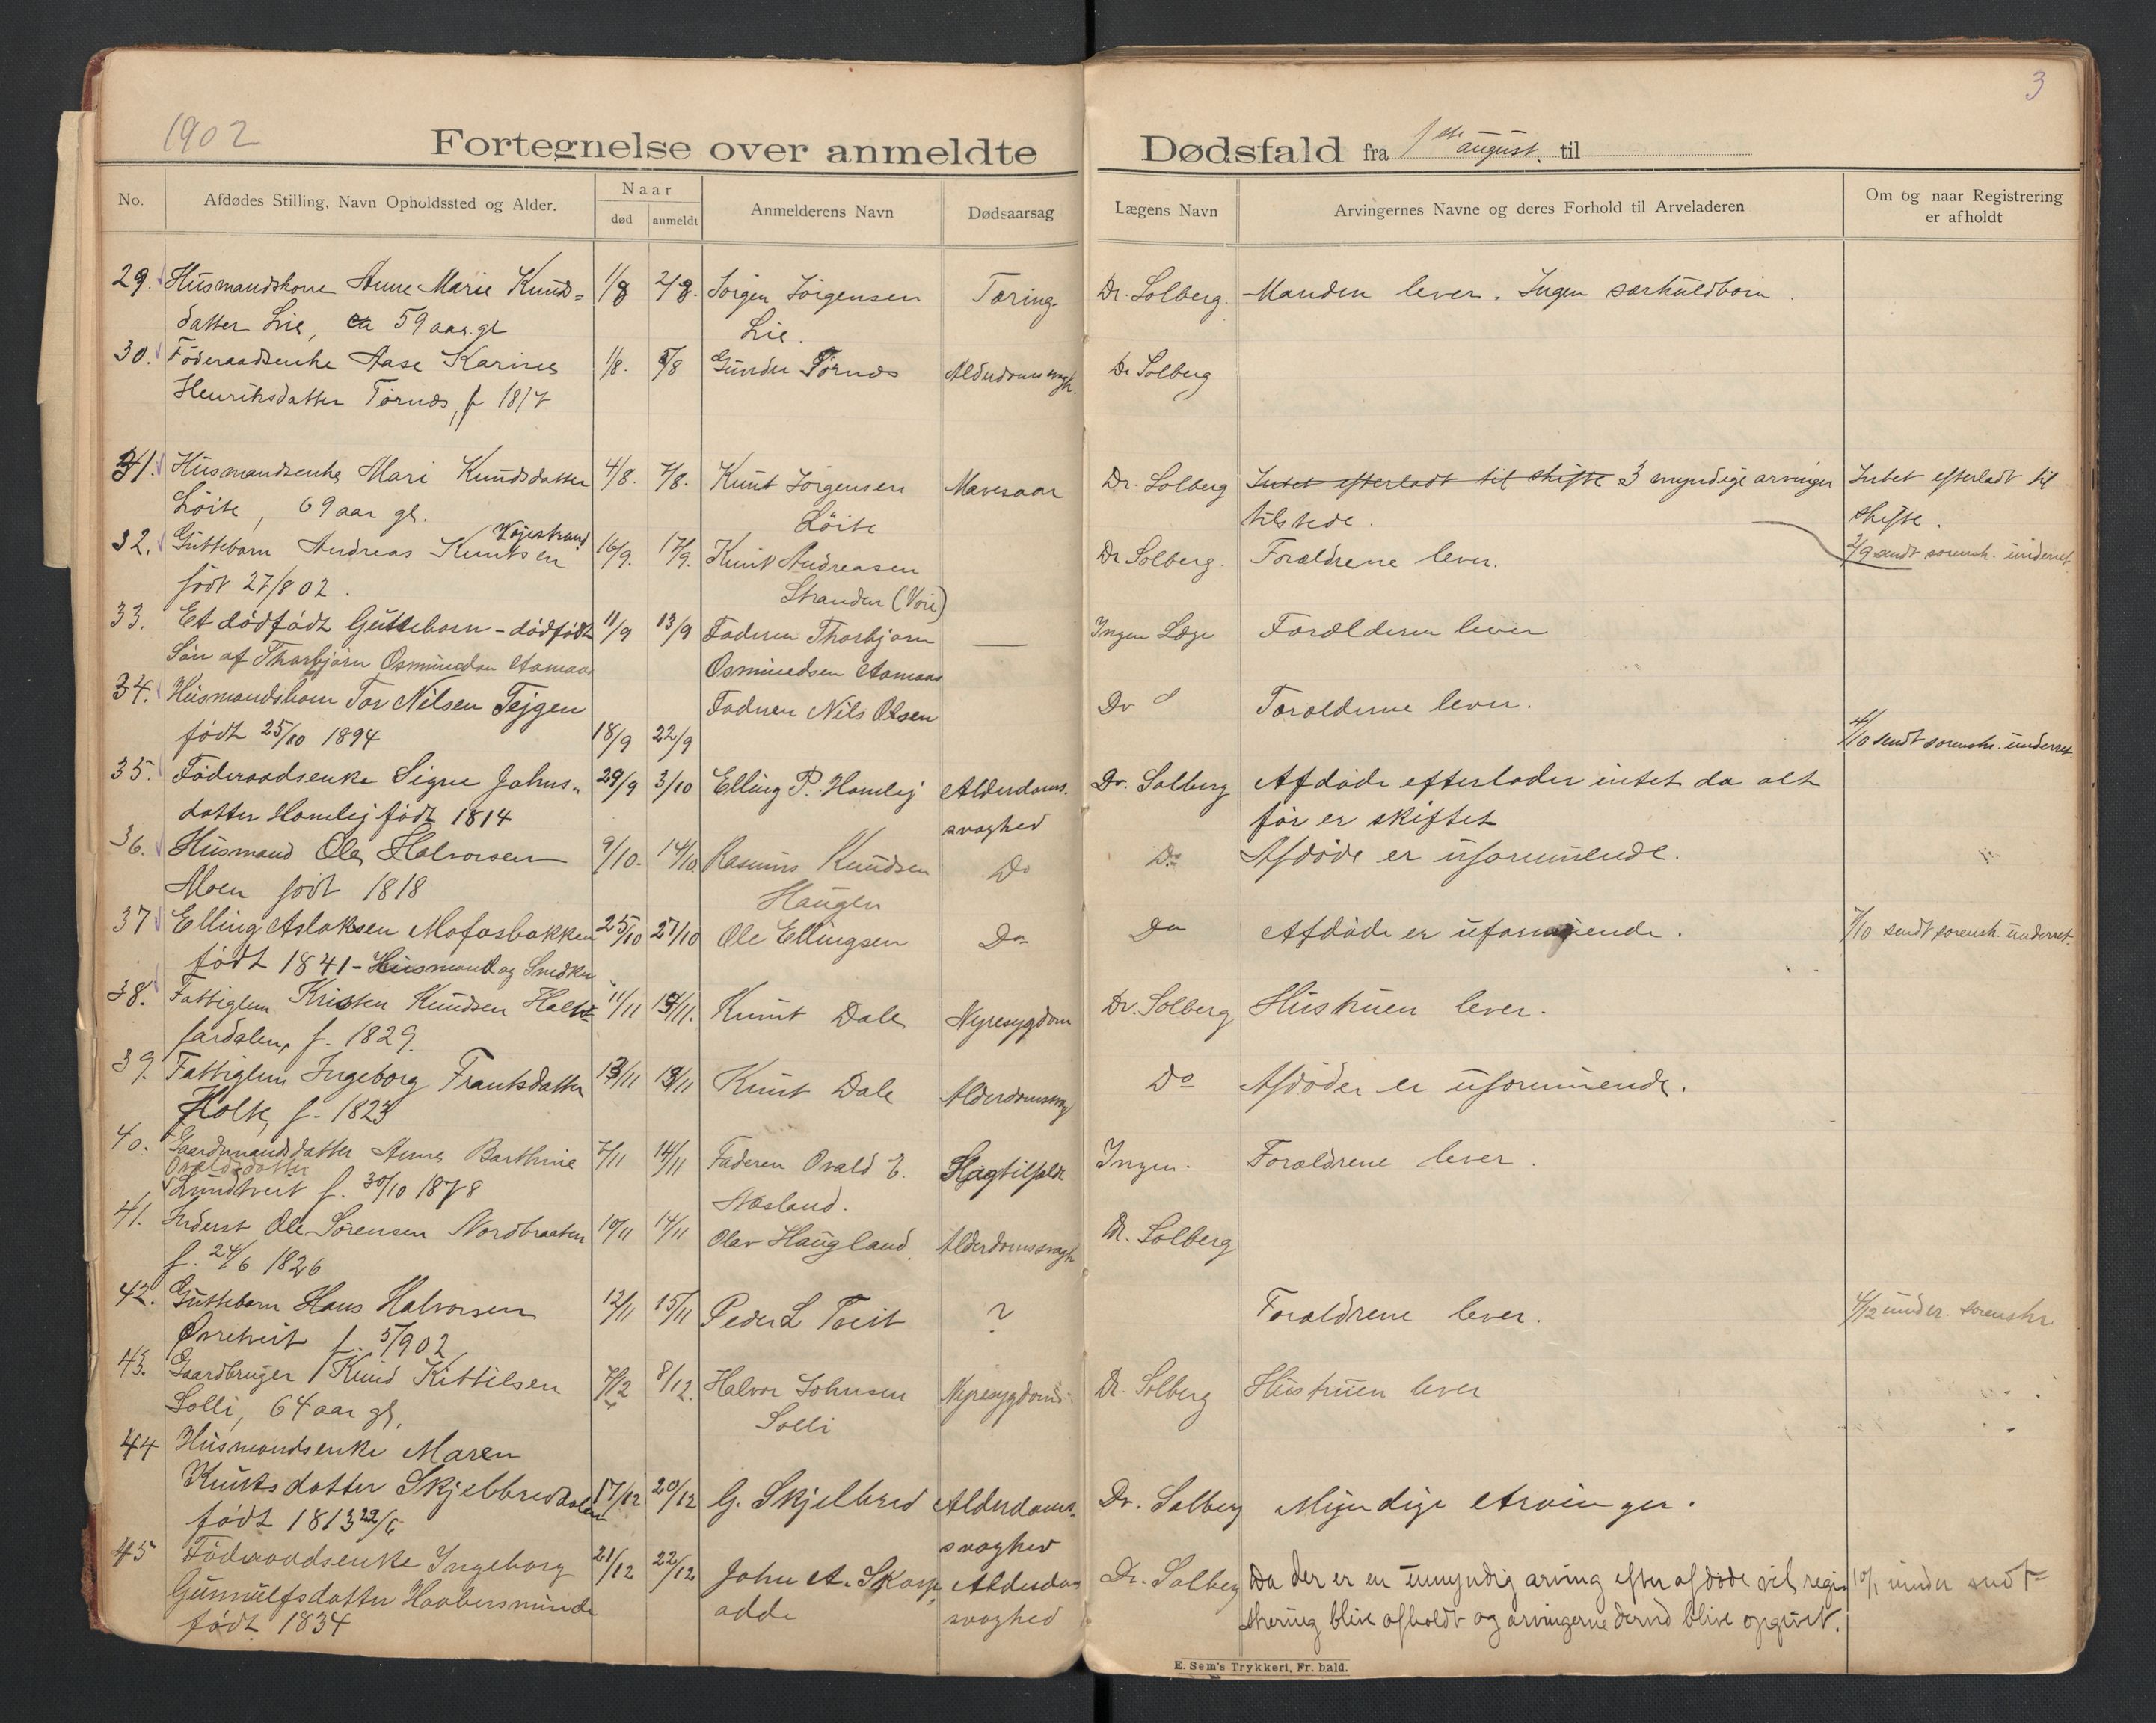 1902
3
Fortegnelse over anmeldte Dødsfald fra 1ste august til
No.
Afdødes Stilling, Navn Opholdssted og Alder.
Naar
død anmeldt
Anmelderens Navn
Dødsaarsag
Lægens Navn
Arvingernes Navne og deres Forhold til Arveladeren
Om og naar Registrering
er afholdt
29. Husmandskone Anne Marie Knuds- 1/8 2/8. Jørgen Jørgensen Tæring Dr. Solberg. Manden lever. Ingen særkuldbørn.
datter Lie, ca 59 aar gl Lie.
30. Føderaadsenke Aase Karine 1/8. 5/8 Gunder Tørnes Alderdomssvagh. Dr Solberg
Henriksdatter Tørnes, f 1817
31. Husmandsenke Mari Knudsdatter 4/8. 7/8. Knut Jørgensen Mavesaar Dr. Solberg Intet efterladt til skifte 3 myndige arvinger Intet efterladt til
Löite, 69 aar gl. Löite tilstede. skifte.
32. Guttebarn Andreas Knutsen 16/9. 17/9. Knut Andreasen Dr Solberg. Forældrene lever. 2/9 sendt sorensk. underret.
født 27/8 02. Stranden
33. Et dødfødt Guttebarn - dødfødt 11/9 13/9 Faderen Thorbjørn — Ingen Læge Forældrene lever
Søn af Thorbjørn Osmundsen Aamaas Osmundsen Aamaas
34. Husmandsbarn Tor Nilsen Tejgen Faderen Nils Olsen Do Forældrene lever.
født 25/10 1894 18/9 22/9 4/10 sendt sorenskr. underret.
35. Føderaadsenke Signe Johns- 29/9 3/10 Elling P. Homlej Alderdoms- Dr. Solberg Afdøde efterlader intet da alt
datter Homlej født 1814 svaghed før er skiftet
36. Husmand Ole Halvorsen 9/10. 14/10 Rasmus Knudsen Do Do Afdøde er uformuende.
Moen født 1818 Haugen
37 Elling Aslaksen Mofosbakken 25/10 27/10 Ole Ellingsen Do Do Afdøde er uformuende. 7/10 sendt sorensk. underret.
født 1841 - Husmand og Snedker
38. Fattiglem Kristen Knudsen Halve- 11/11 Knut Dale Nyresygdom Dr. Solberg Hustruen lever.
fardalen, f. 1829.
39. Fattiglem Ingeborg Frantsdatter 13/11 18/11 Knut Dale Alderdomssvag Do Afdøde er uformuende.
Holte, f. 1823
40. Gaardmandsdatter Anne Barthine 7/11 14/11 Faderen Ovald E. Slagtilfælde Ingen. Forældrene lever.
Ovaldsdatter
Lundtveit f. 30/10 1878 Næsland.
41. Inderst Ole Sørensen Nordbraaten 10/11 14/11 Olav Haugland. Alderdomssvagh Dr. Solberg
f. 24/6 1826
42. Guttebarn Hans Halvorsen 12/11 15/11 Peder L Tveit ? Forældrene lever. 4/12 under. sorenskr.
Øvretveit f. 5/9 02
43. Gaardbruger Knud Kittilsen 7/12 8/12. Halvor Johnsen Nyresygdom Dr. Solberg Hustruen lever
Solli, 64 aar gl. Solli
44 Husmandsenke Maren
Knutsdatter Skjelbreddalen 17/12 20/12 G. Skjelbred Alderdoms- Dr. Solberg Myndige Arvinger.
født 1813 22/6 svaghed
45 Føderaadsenke Ingeborg 21/12 22/12 John A. Skarp- Alderdoms Dr. Solberg Da der er en umyndig arving efter afdøde vil regi- 10/1 under sendt
Gunnulfsdatter Haabersminde odde svaghed strering blive afholdt og arvingerne derved blive opgivet.
født 1834
E. Sem's Trykkeri, Fr. hald.